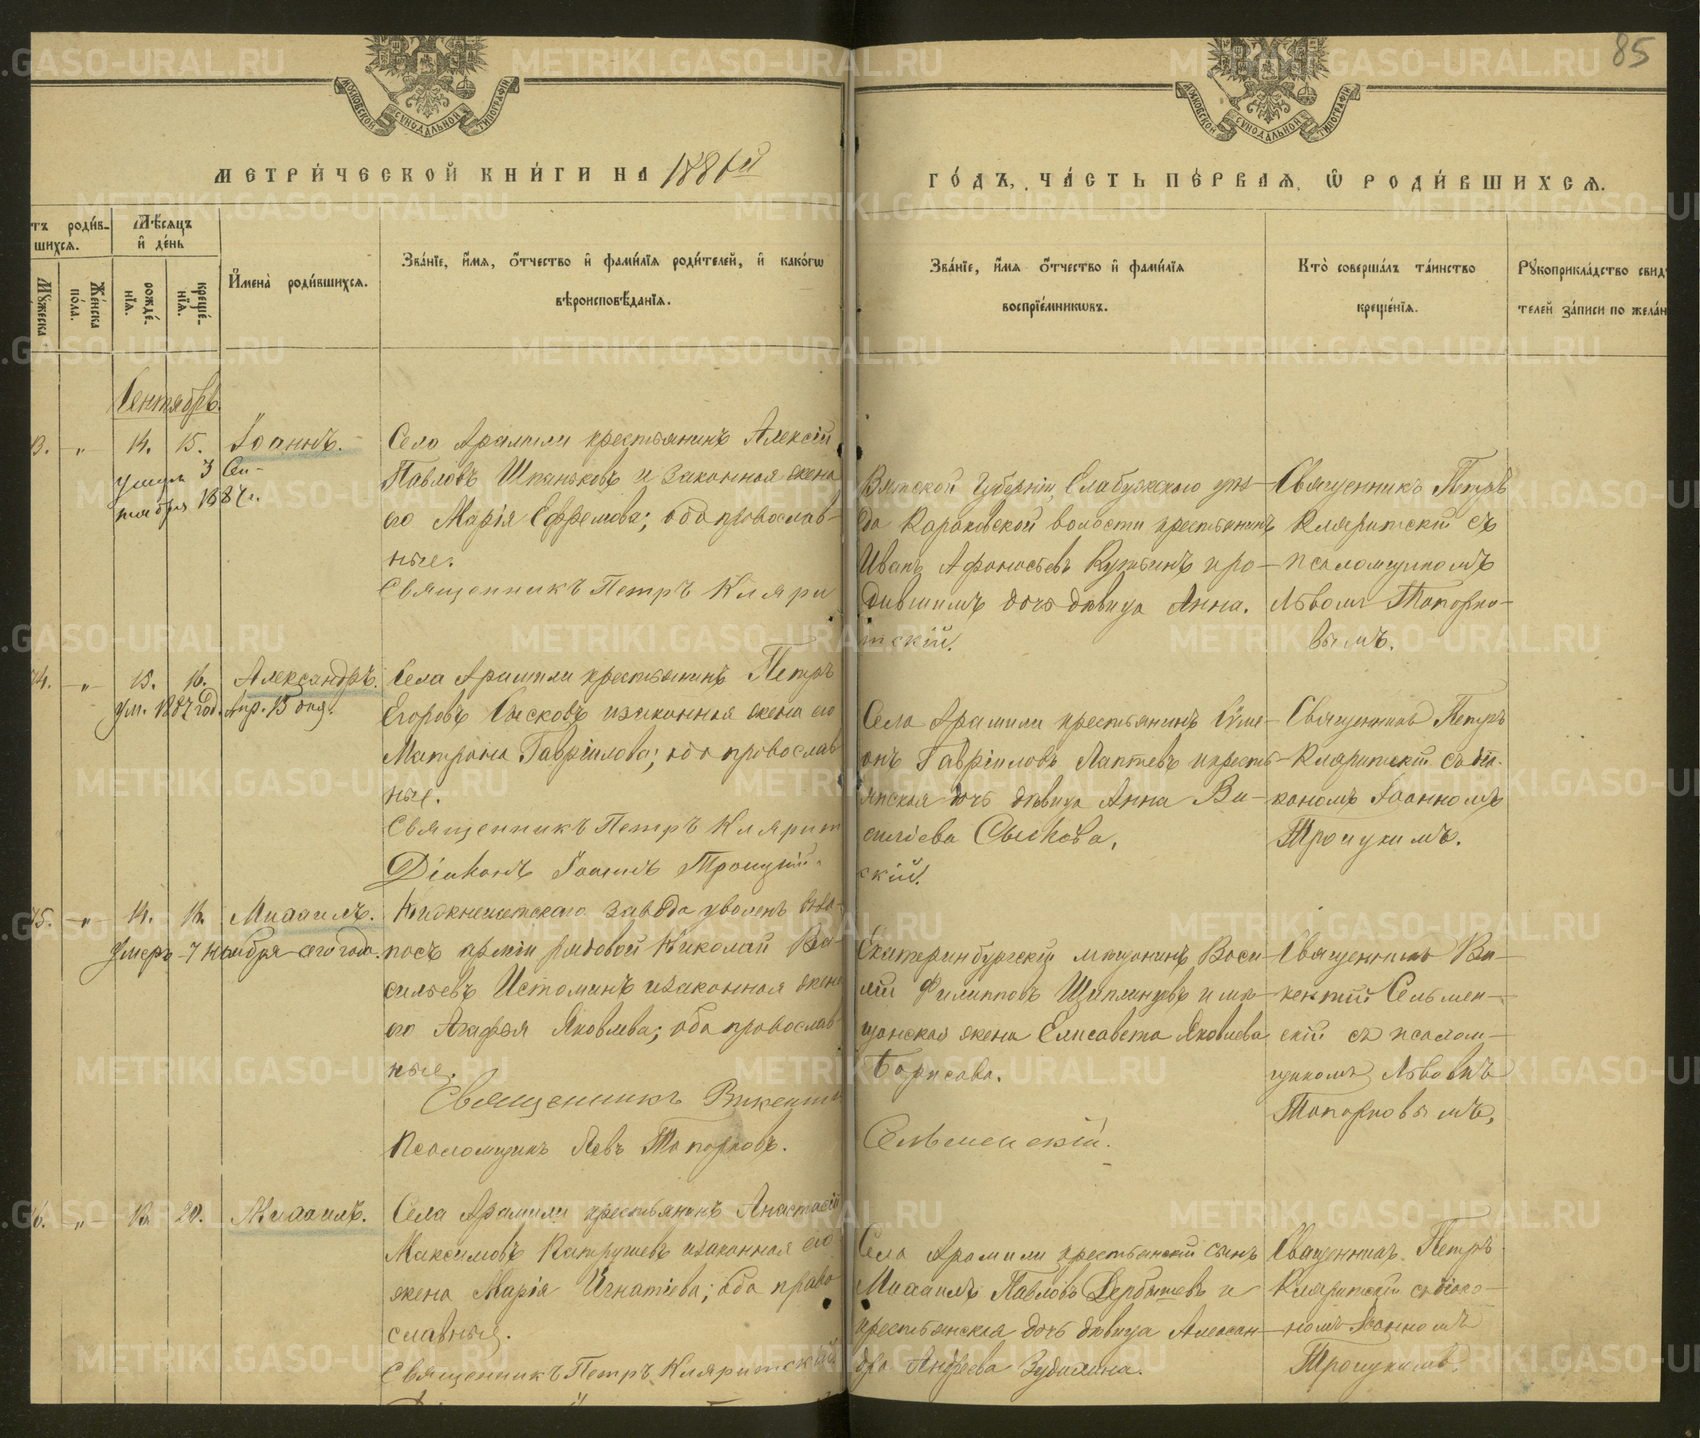 85
МЕТРИ́ЧЕСКОЙ КНИ́ГИ НА 1886й
ГО́ДЪ, ЧА́СТЬ ПЕ́РВАЯ, Ѡ РОДИ́ВШИХСЯ.
МОСКОВСКОЙ СѴНОДАЛЬНОЙ ТИПОГРАФІИ
МОСКОВСКОЙ СѴНОДАЛЬНОЙ ТИПОГРАФІИ
тъ роди́в-
шихся.
Мѣ́сяцъ
и҆ де́нь
Мꙋ́жеска
Же́нска по́ла.
рожде́нїя.
креще́нїя.
И҆мена̀ роди́вшихся.
Зва́нїе, и҆́мя, ѻ҆́тчество и҆ фами́лїя роди́телей, и҆ како́гѡ
вѣроисповѣ́данїя.
Зва́нїе, и҆́мя ѻ҆́тчество и҆ фами́лїя
воспрїе́мникѡвъ.
Кто̀ соверша́лъ та́инство
креще́нїя.
Рꙋкоприкла́дство свид
телей за́писи по жела́н
Сентябрь
3. " 14. 15. Іоаннъ.
умеръ 3 Сен-
тября 1887 г.
Села Арамили крестьянинъ Алексій
Павловъ Шпаньковъ и законная жена
его Марія Ефремова; оба православ-
ные.
Священникъ Петръ Кляри
Вятской Губерніи, Елабужскаго уѣз-
да Кораковской волости крестьянинъ
Иванъ Афонасьевъ
дившимъ дочь дѣвица Анна.
тскій.
Священникъ Петръ
Кляритскій съ
псаломщикомъ
Львомъ Топорко-
вымъ.
4. " 15. 16. Александръ.
Ум. 1887 год. Апр. 13 дня.
Села Арамили крестьянинъ Петръ
Егоровъ Сысковъ и законная жена его
Матрона Гавріилова; оба православ
ные.
Священникъ Петръ Клярит
Діаконъ Іоаннъ Троицкій.
Села Арамили крестьянинъ Симе-
онъ Гавріиловъ Лаптевъ и кресть-
янская дочь дѣвица Анна Ва-
сильева Сыскова.
скій.
Священникъ Петръ
Кляритскій съ діа-
кономъ Іоанномъ
Троицкимъ.
5. " 14. 16. Михаилъ.
Умеръ 7 ноября сего года.
Нижнеисетскаго завода уволенъ въ за-
пасъ арміи рядовой Николай Ва-
сильевъ Истоминъ и законная жена
его Агафья Яковлева; оба православ
ные.
Священникъ Викентій
Псаломщикъ Левъ Топорковъ.
Екатеринбургскій мѣщанинъ Васи-
лій Филипповъ Щиплинцевъ и мѣ-
щанская жена Елисавета Яковлева
Борисова.
Сельменскій.
Священникъ Ви-
кентій Сельмен-
скій съ псалом-
щикомъ Львомъ
Топорковымъ.
6. " 20. Михаилъ.
Села Арамили крестьянинъ Анастасій
Максимовъ Катрушевъ и законная его
жена Марія Игнатіева; оба право
славные.
Священникъ Петръ Кляритскій
Села Арамили крестьянскій сынъ
Михаилъ Павловъ Дербышевъ и
крестьянская дочь дѣвица Алексан-
дра Андреева Зубахина.
Священникъ Петръ
Кляритскій съ діако-
номъ Іоанномъ
Троицкимъ.